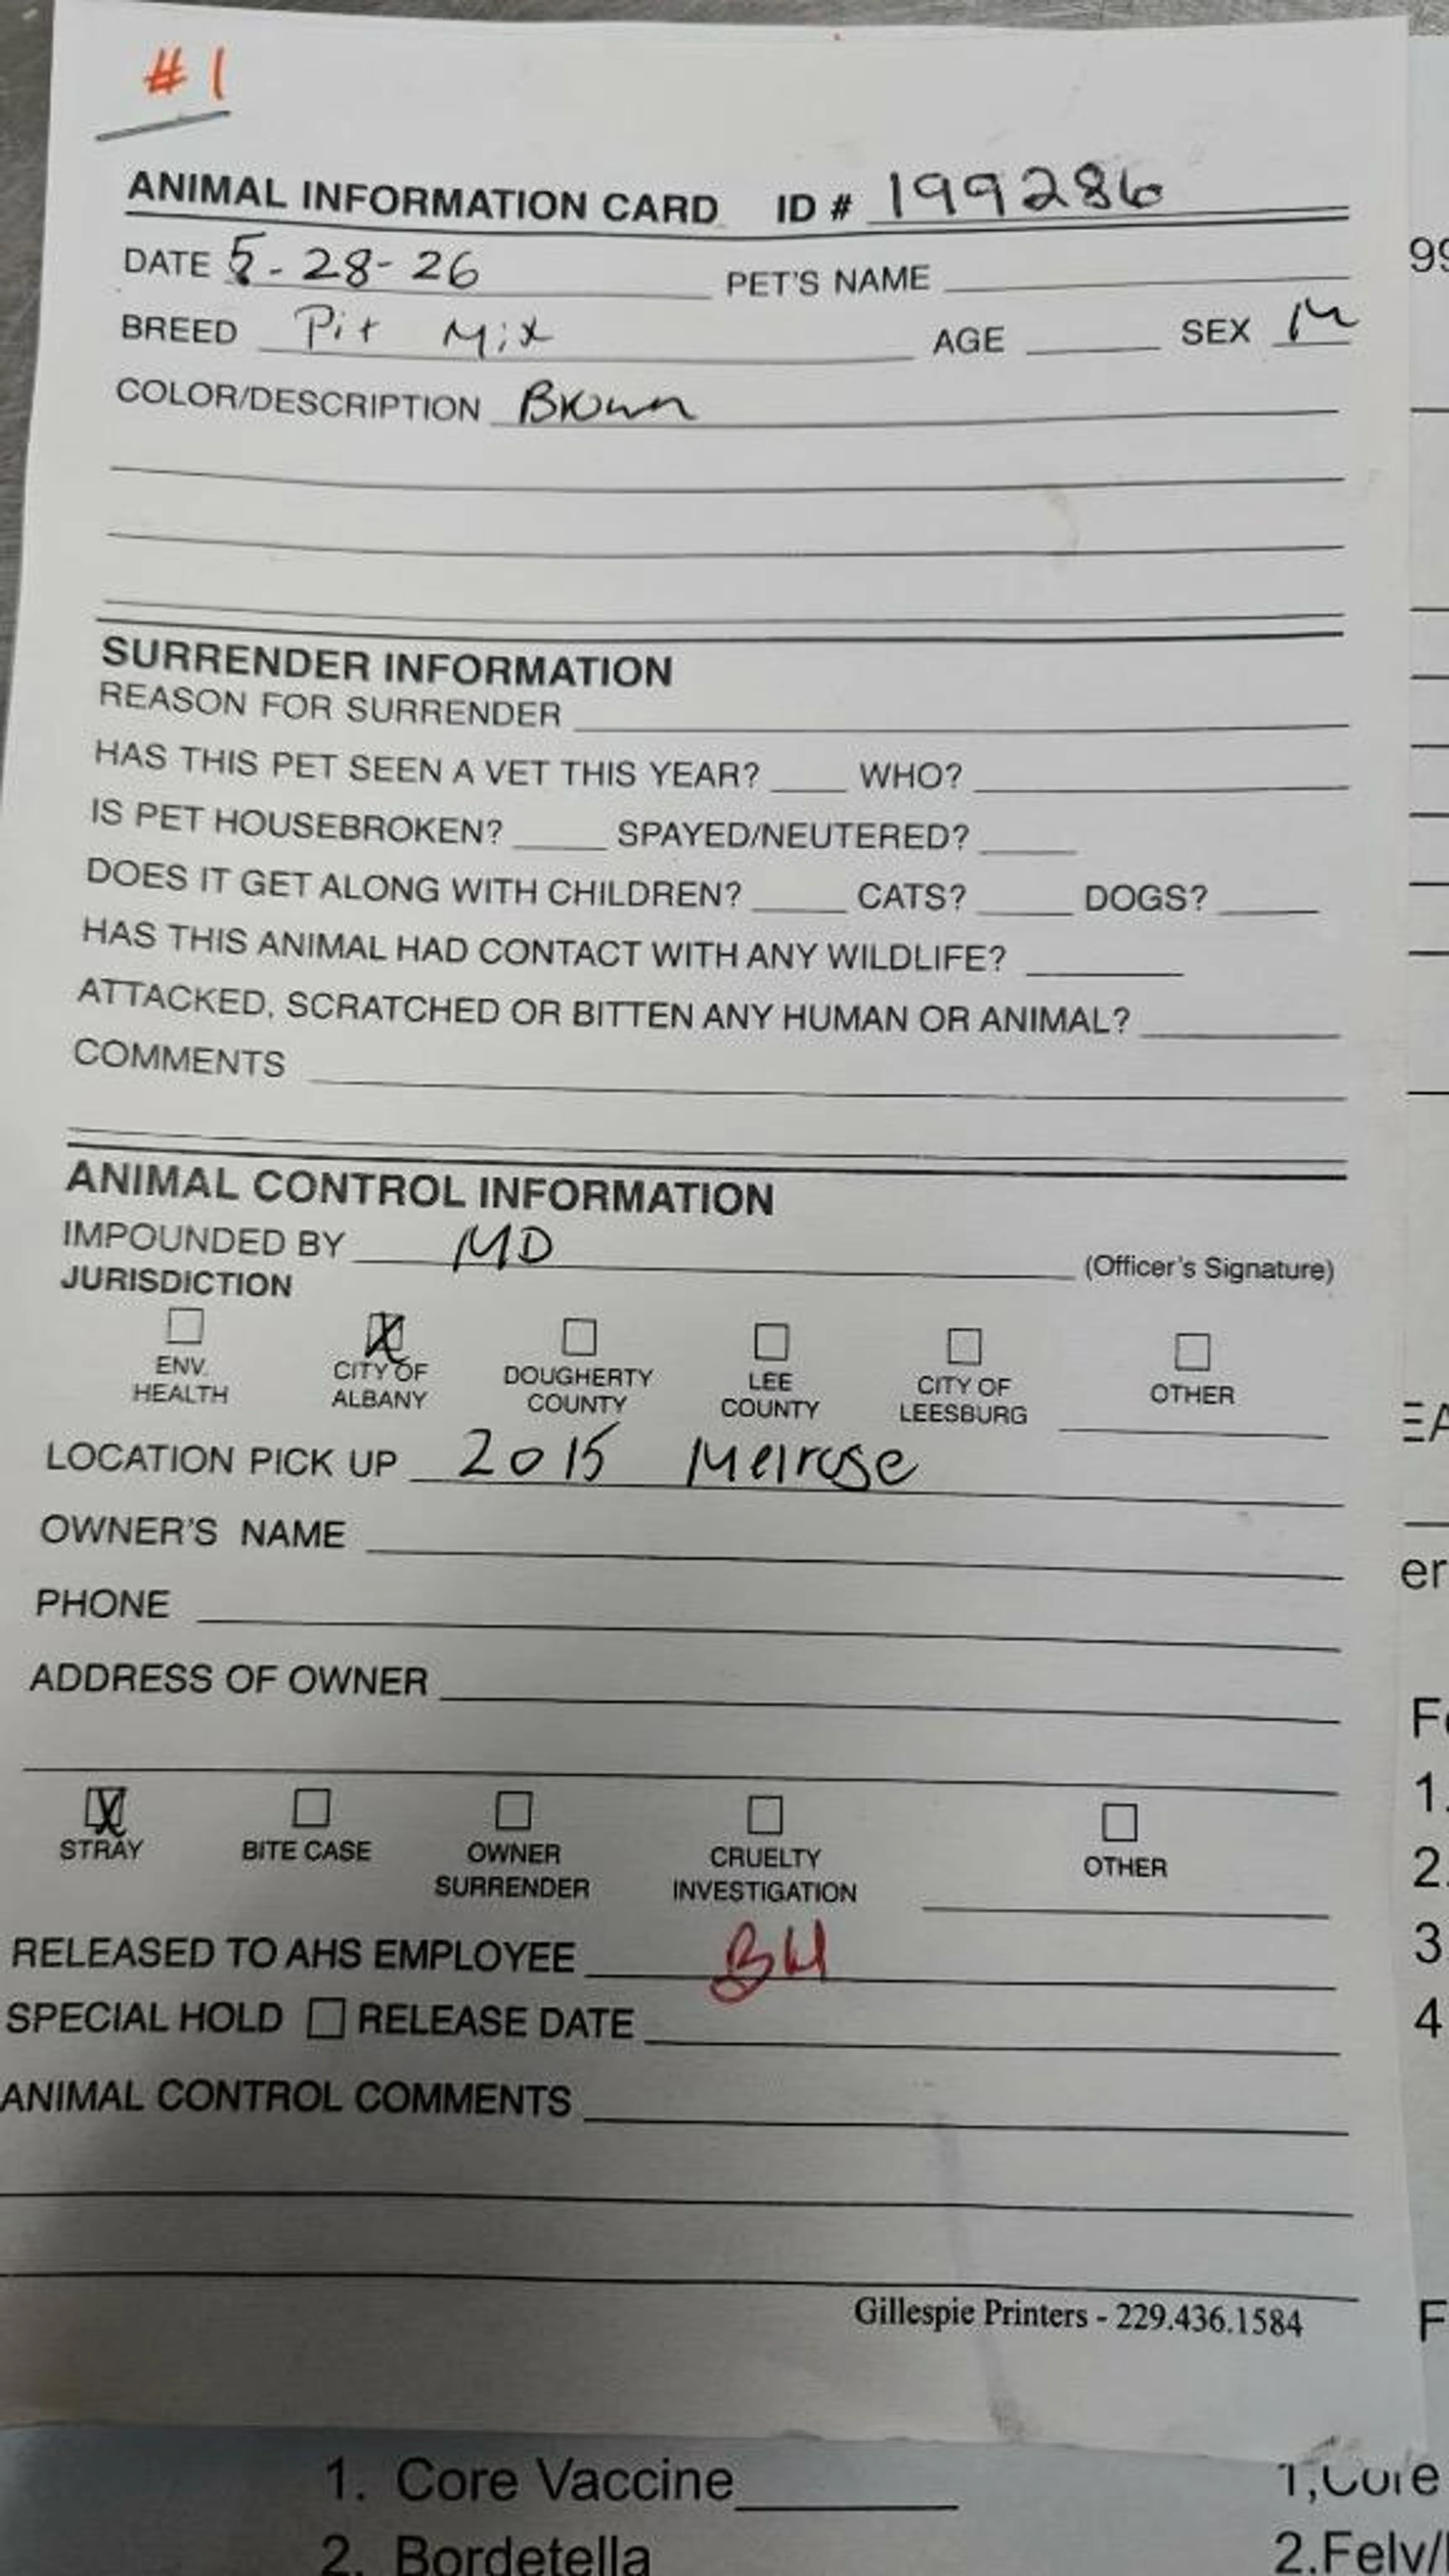 #1
ANIMAL INFORMATION CARD ID # 199286
DATE 5-28-26 PET'S NAME
BREED Pit Mix AGE SEX M
COLOR/DESCRIPTION Brown
SURRENDER INFORMATION
REASON FOR SURRENDER
HAS THIS PET SEEN A VET THIS YEAR? WHO?
IS PET HOUSEBROKEN? SPAYED/NEUTERED?
DOES IT GET ALONG WITH CHILDREN? CATS? DOGS?
HAS THIS ANIMAL HAD CONTACT WITH ANY WILDLIFE?
ATTACKED, SCRATCHED OR BITTEN ANY HUMAN OR ANIMAL?
COMMENTS
ANIMAL CONTROL INFORMATION
IMPOUNDED BY MD (Officer's Signature)
JURISDICTION
ENV. HEALTH
CITY OF ALBANY
DOUGHERTY COUNTY
LEE COUNTY
CITY OF LEESBURG
OTHER
LOCATION PICK UP 2015 Melrose
OWNER'S NAME
PHONE
ADDRESS OF OWNER
STRAY
BITE CASE
OWNER SURRENDER
CRUELTY INVESTIGATION
OTHER
RELEASED TO AHS EMPLOYEE BH
SPECIAL HOLD RELEASE DATE
ANIMAL CONTROL COMMENTS
Gillespie Printers - 229.436.1584
1. Core Vaccine
2. Bordetella
99
EA
er
1.
2.
3
4
F
1,Core
2.Felv/